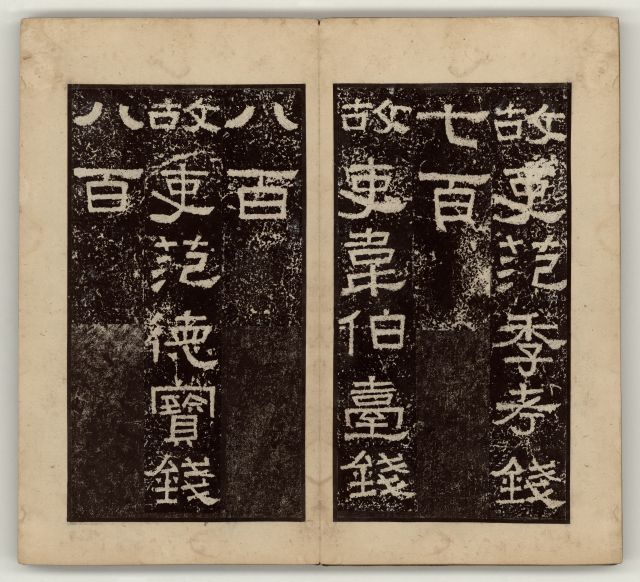 故吏范季孝錢
七百
故吏韋伯臺錢
八百
故吏范德寶錢
八百